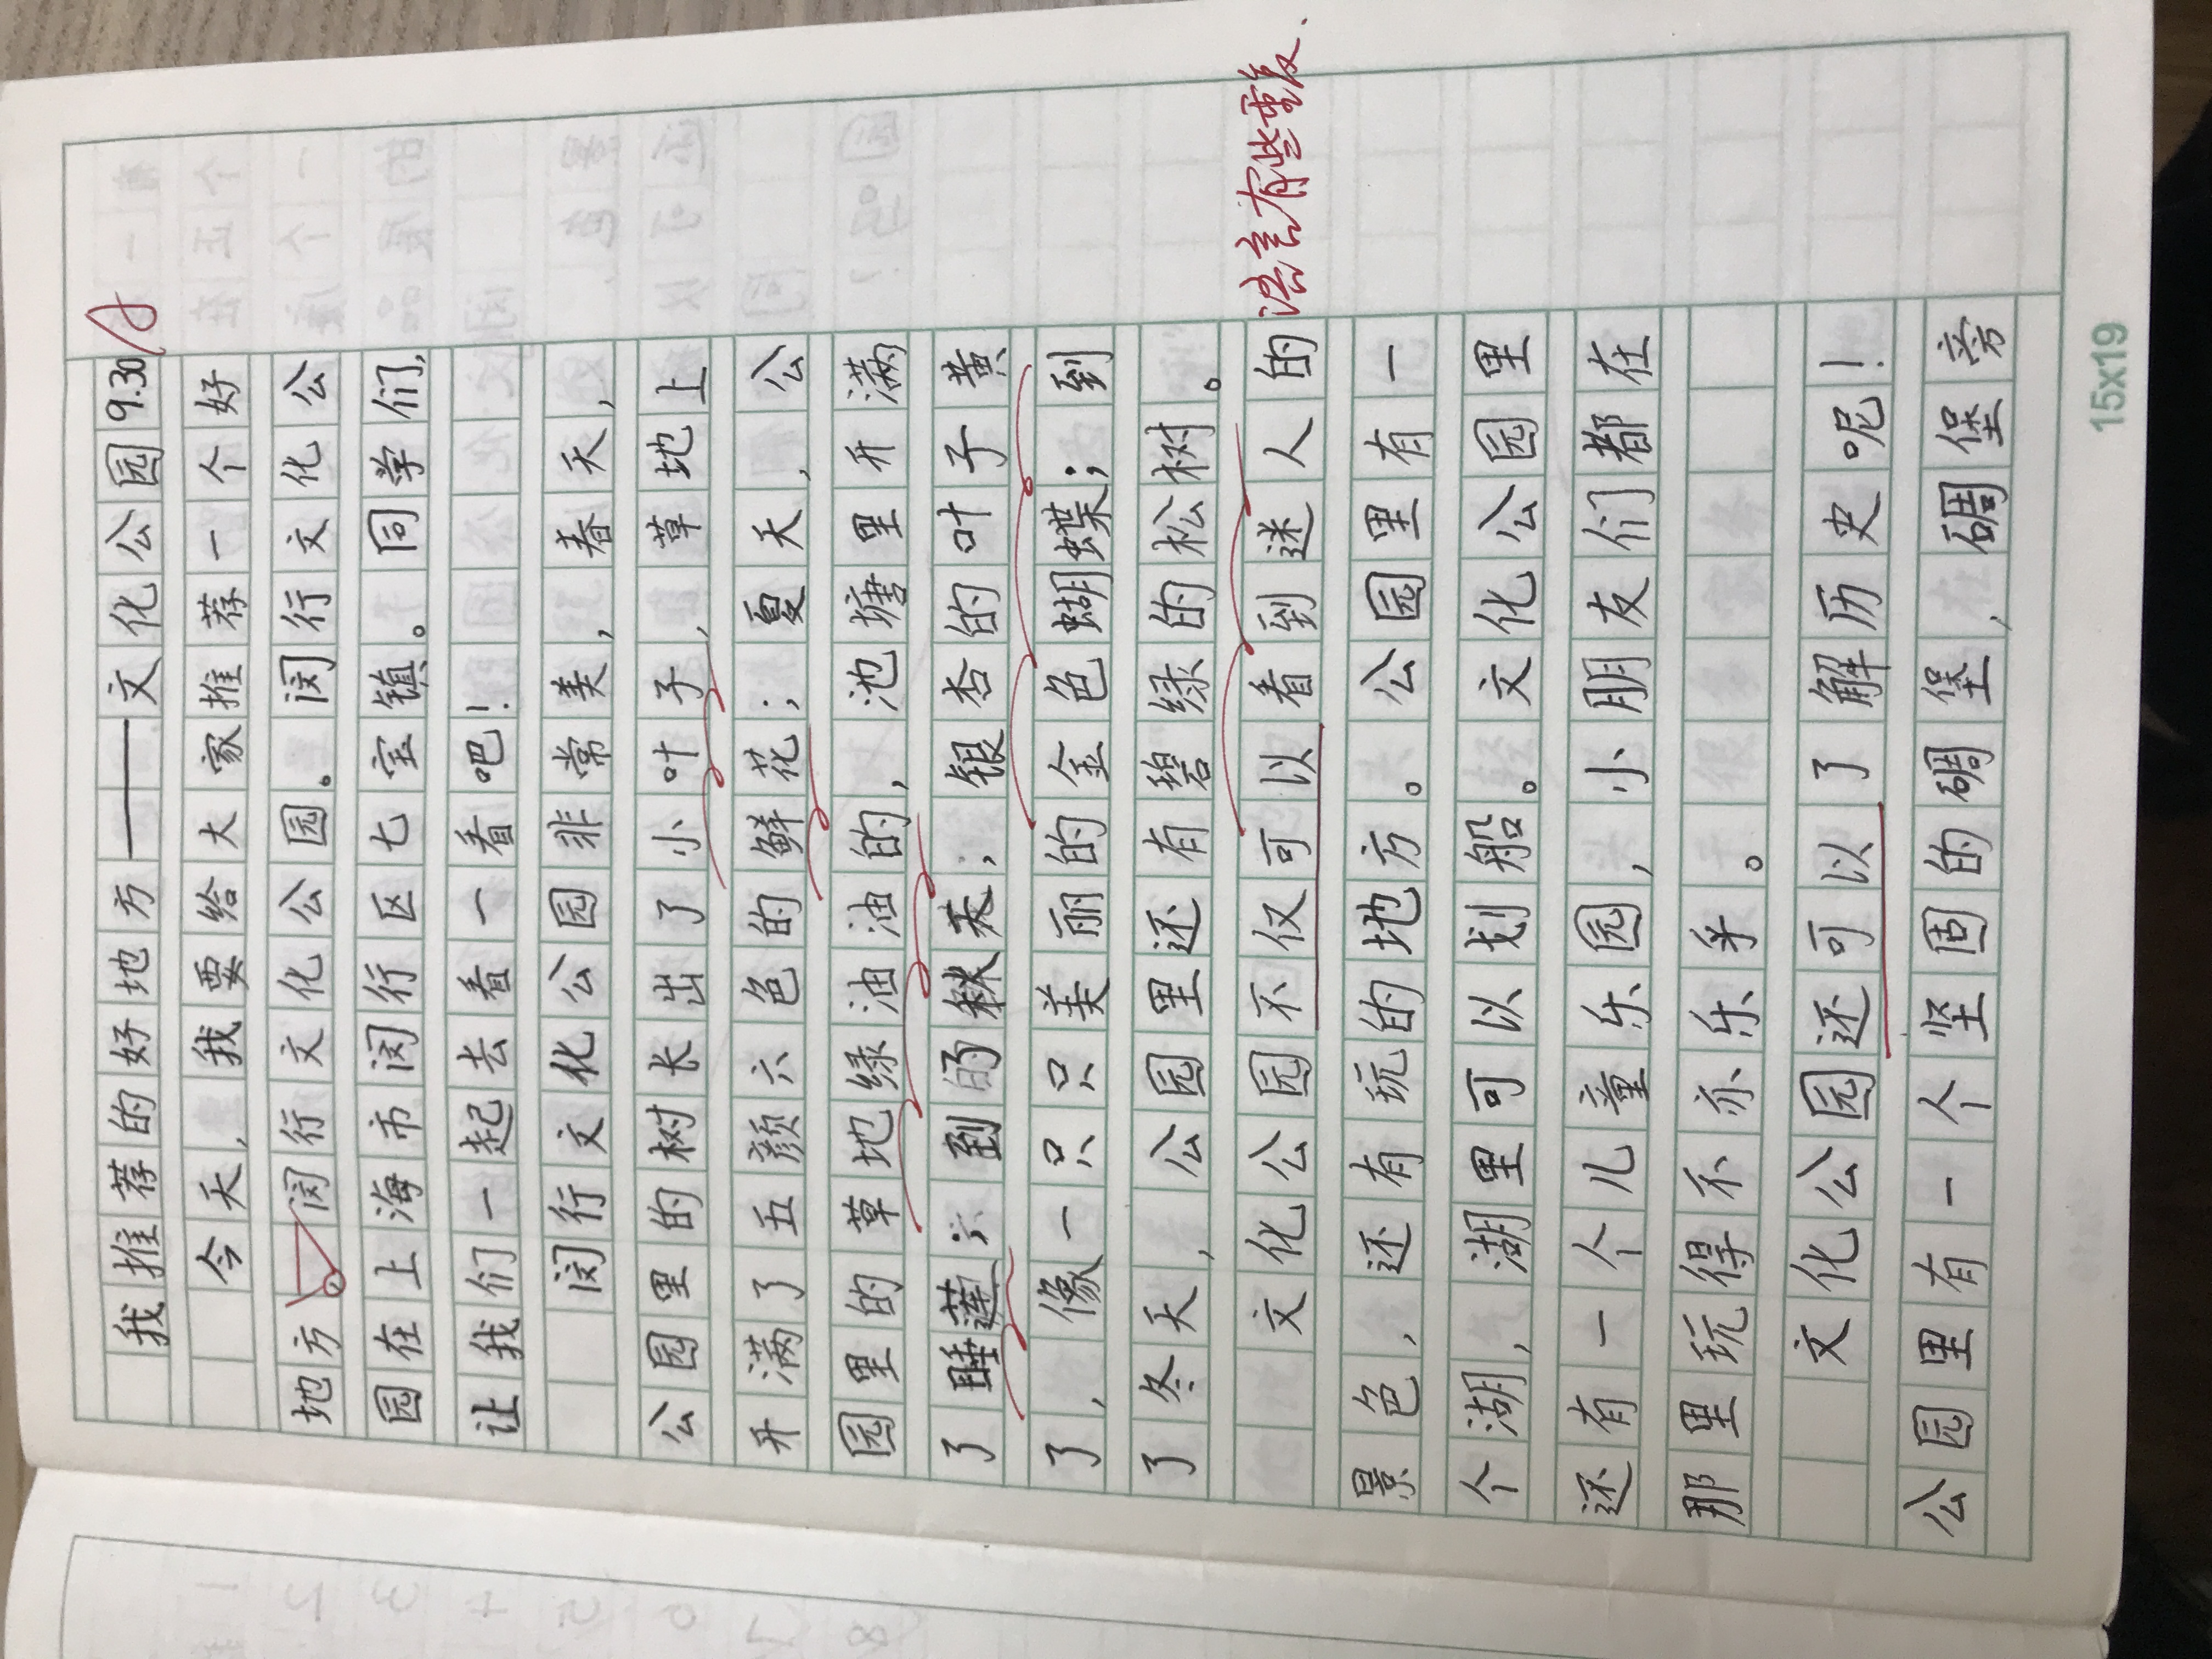 我推荐的好地方——文化公园9.30 A
今天,我要给大家推荐一个好
地方 闵行文化公园。闵行文化公
园在上海市闵行区七宝镇。同学们,
让我们一起去看一看吧!
闵行文化公园非常美,春天,
公园里的树长出了小叶子,草地上
开满了五颜六色的鲜花;夏天,公
园里的草地绿油油的,池塘里开满
了睡莲;到了秋天,银杏的叶子黄
了,像一只只美丽的金色蝴蝶;到
了冬天,公园里还有碧绿的松树。
文化公园不仅可以看到迷人的
语言有些重复、
景色,还有玩的地方。公园里有一
个湖,湖里可以划船。文化公园里
还有一个儿童乐园,小朋友们都在
那里玩得不亦乐乎。
文化公园还可以了解历史呢!
公园里有一个坚固的碉堡,碉堡旁
15x19